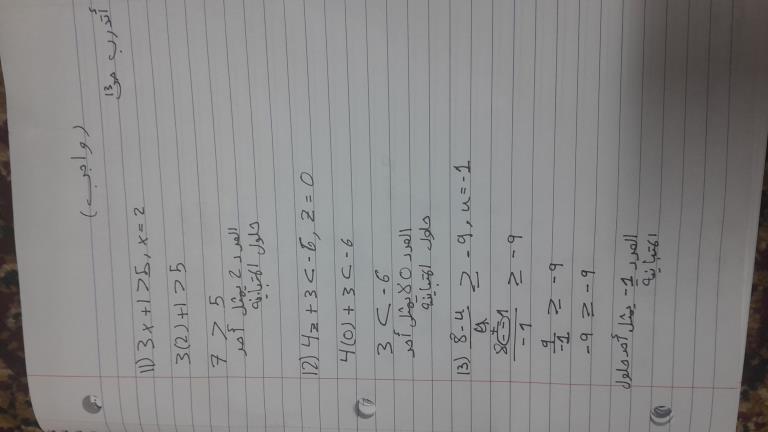 أتدرب ص13
(واجب)
11) 3x+1>5, x=2
3(2)+1>5
7 > 5
العدد 2 يمثل أحد
حلول المتباينة
12) 4z+3<-6, z=0
4(0)+3<-6
3 < -6
العدد 0 لا يمثل أحد
حلول المتباينة
13) 8-u/u ≥ -9, u=-1
8(-)-1/-1 ≥ -9
9/-1 ≥ -9
-9 ≥ -9
العدد -1 يمثل أحد حلول
المتباينة